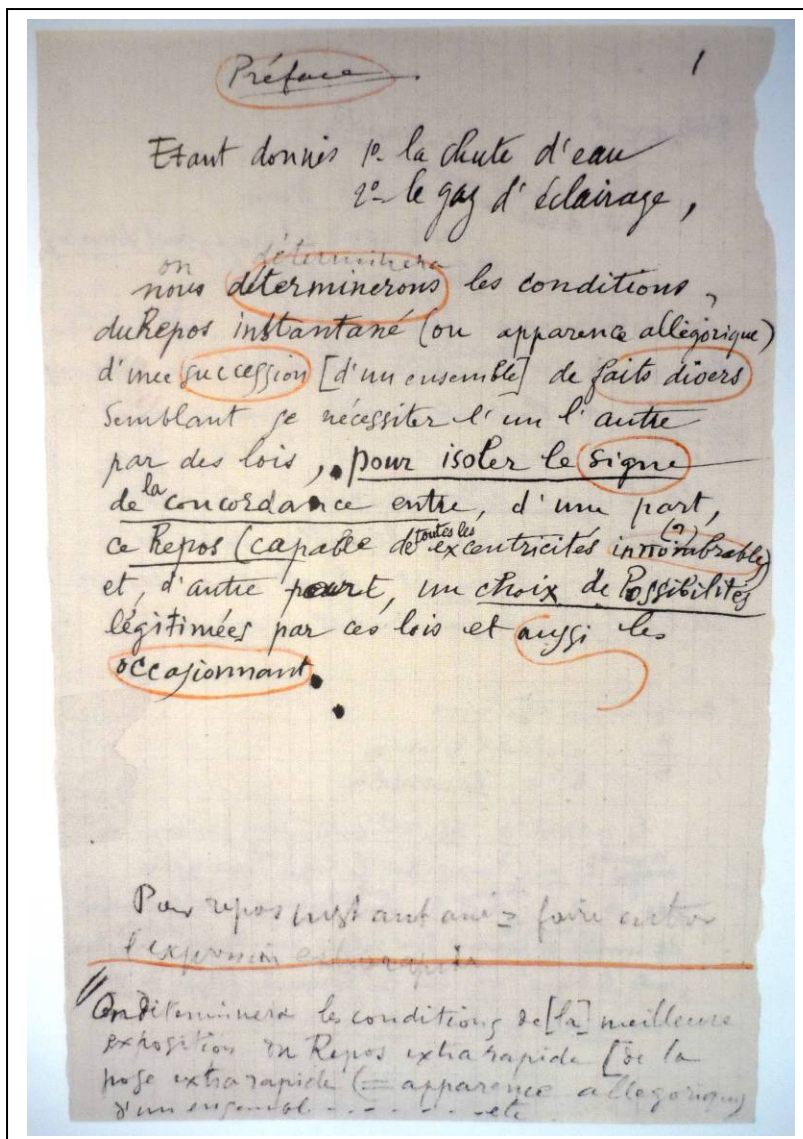 Préface. 1
Etant donnés 1º- la chute d'eau
2º- le gaz d'éclairage,
on déterminera
nous déterminerons les conditions
du Repos instantané (ou apparence allégorique)
d'une succession [d'un ensemble] de faits divers
semblant se nécessiter l'un l'autre
par des lois, pour isoler le signe
de la concordance entre, d'une part,
ce Repos (capable de toutes les excentricités innombrables (?))
et, d'autre part, un choix de Possibilités
légitimées par ces lois et aussi les
occasionnant.
Pour repos instantané = faire entrer
l'expression extra rapide
On déterminera les conditions de [la] meilleure
exposition du Repos extra rapide [de la
pose extra rapide (= apparence allégorique)
d'un ensembl - - - - - - etc